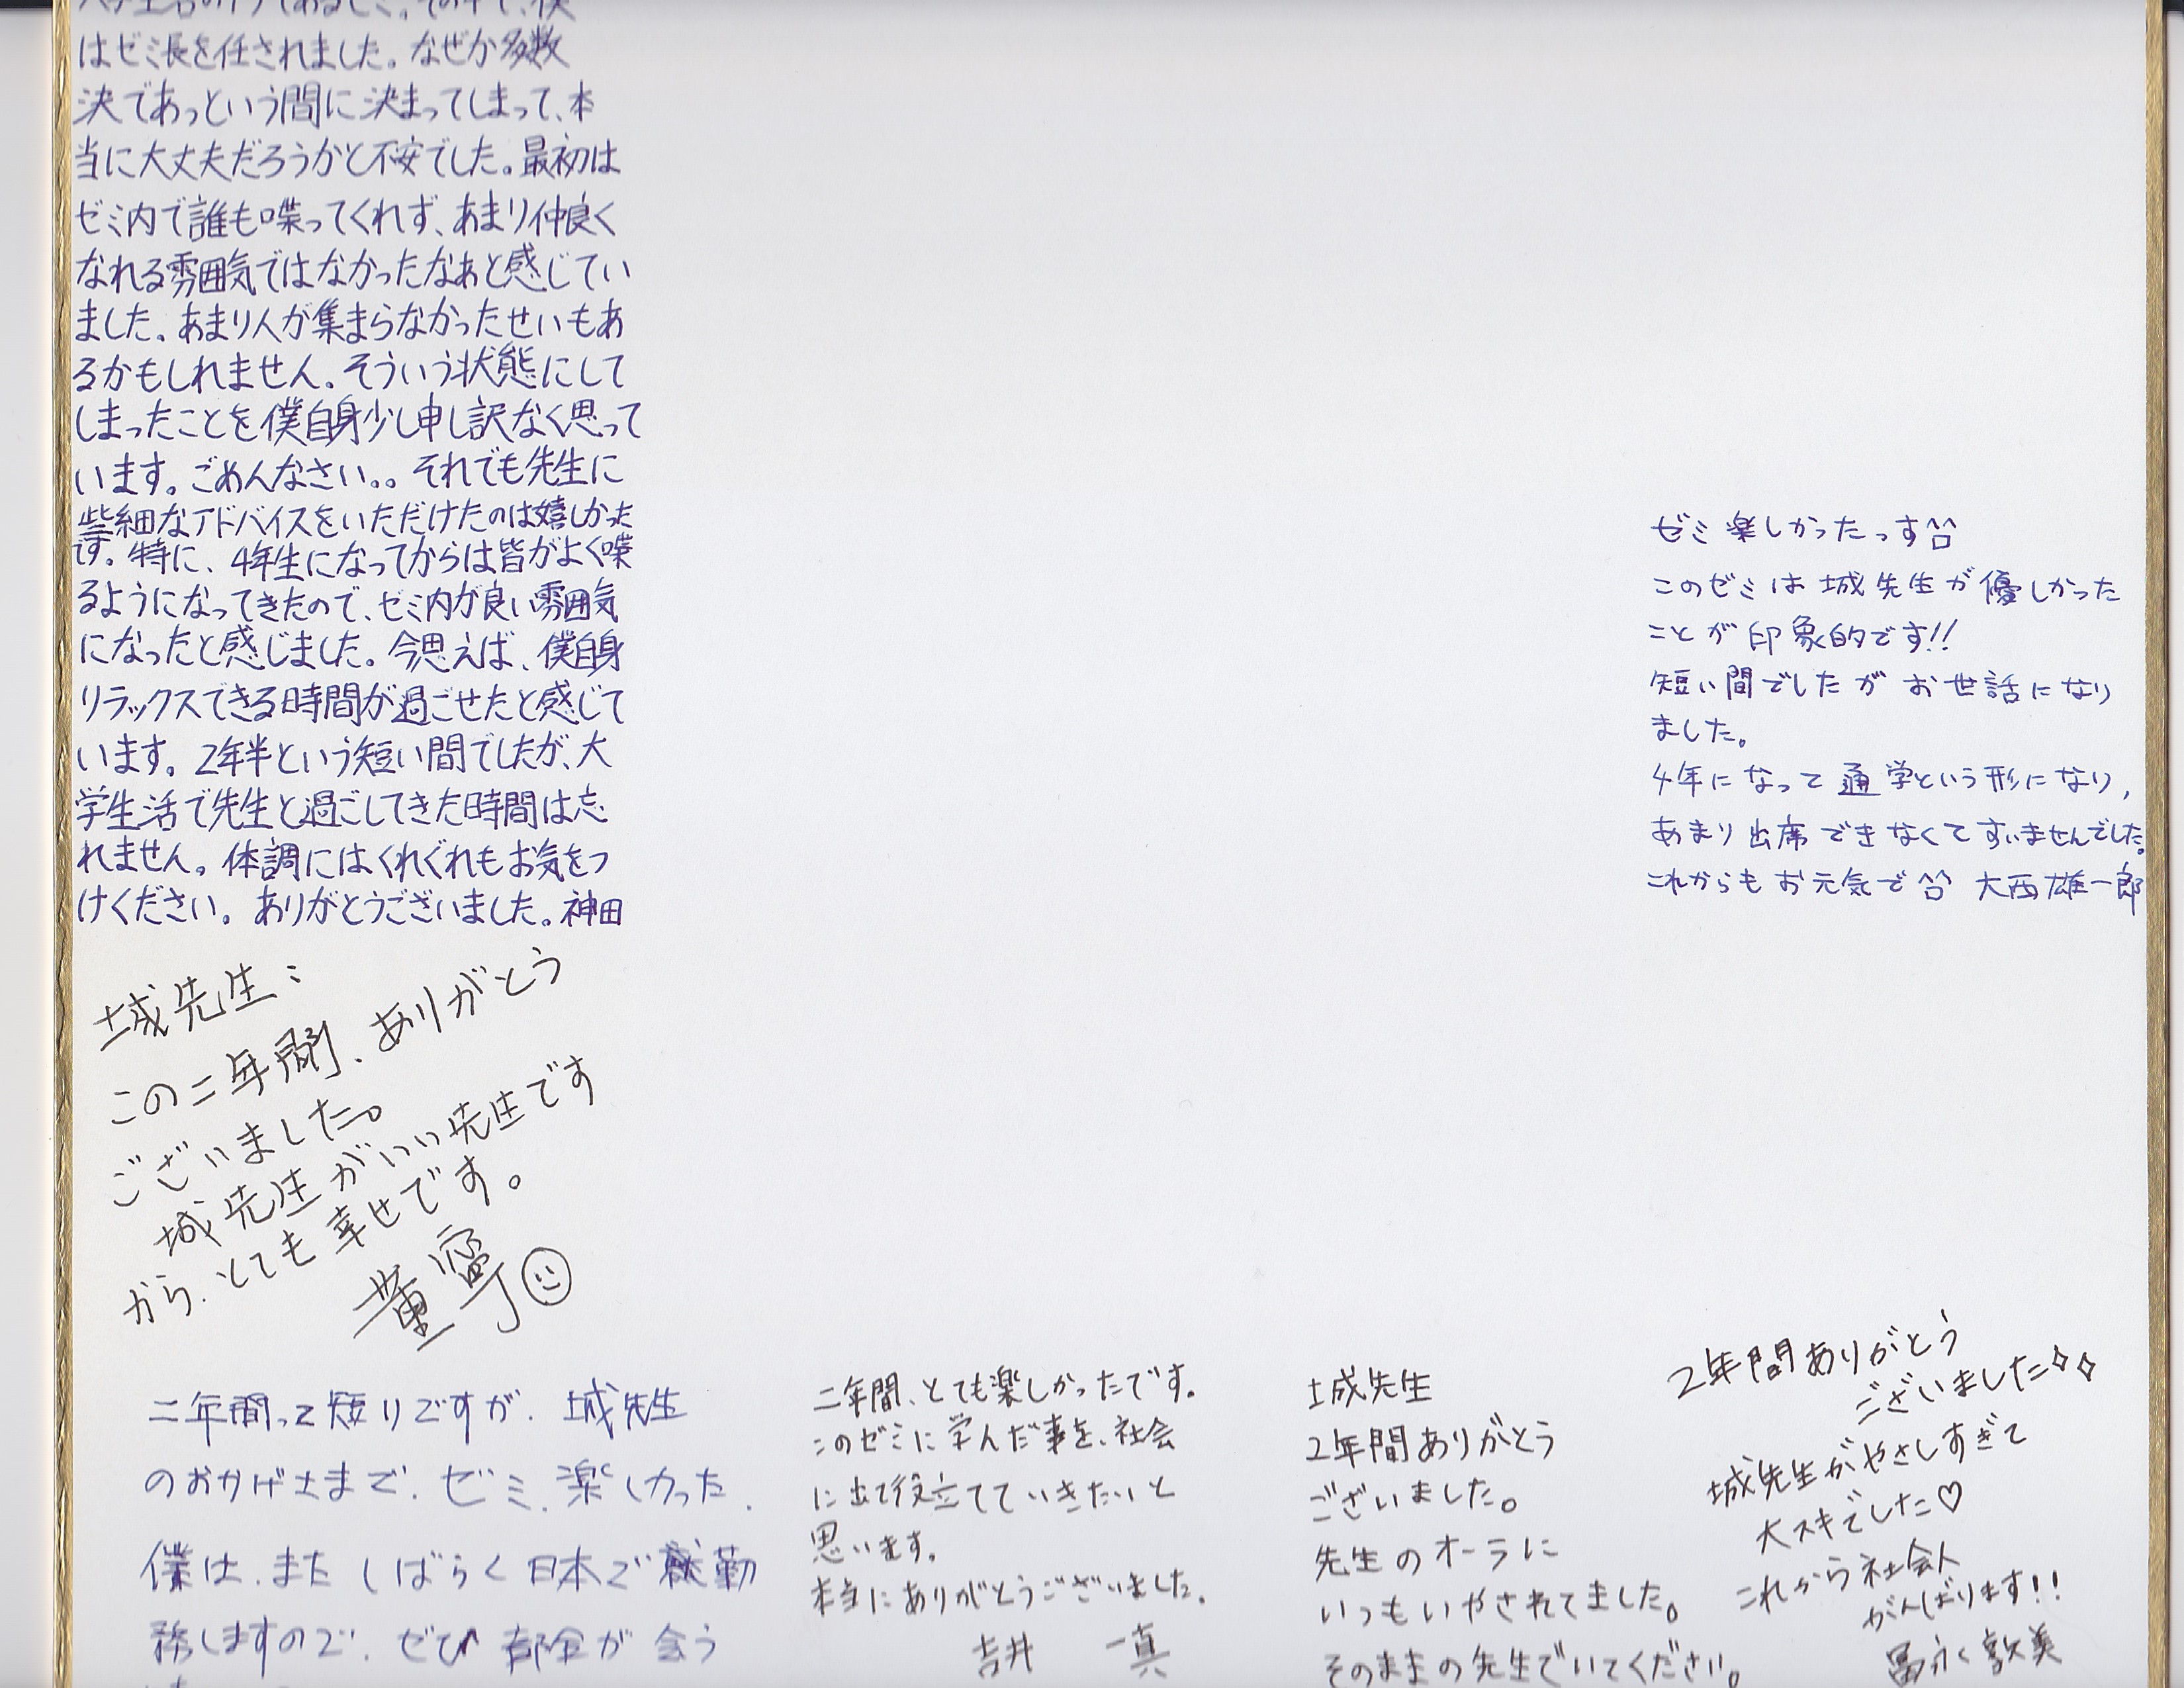 はゼミ長を任されました。なぜか多数
決であっという間に決まってしまって、本
当に大丈夫だろうかと不安でした。最初は
ゼミ内で誰も喋ってくれず、あまり仲良く
なれる雰囲気ではなかったなぁと感じてい
ました。あまり人が集まらなかったせいもあ
るかもしれません。そういう状態にして
しまったことを僕自身少し申し訳なく思って
います。ごめんなさい。。それでも先生に
些細なアドバイスをいただけたのは嬉しかった
です。特に、4年生になってからは皆がよく喋
るようになってきたので、ゼミ内が良い雰囲気
になったと感じました。今思えば、僕自身
リラックスできる時間が過ごせたと感じて
います。2年半という短い間でしたが、大
学生活で先生と過ごしてきた時間は忘
れません。体調にはくれぐれもお気をつ
けください。ありがとうございました。神田
ゼミ楽しかったっす^□^
このゼミは城先生が優しかった
ことが印象的です!!
短い間でしたがお世話になり
ました。
4年になって通学という形になり,
あまり出席できなくてすいませんでした。
これからもお元気で^□^ 大西雄一郎
城先生:
この二年間、ありがとう
ございました。
城先生がいい先生です
から、とても幸せです。
董寧
二年間って短りですが、城先生
のおかげさまで、ゼミ、楽しかった、
僕は、またしばらく日本で就勤
務しますので、ぜひ都合が会う
二年間、とても楽しかったです。
このゼミに学んだ事を、社会
に出て役立てていきたいと
思います。
本当にありがとうございました。
吉井 一真
城先生
2年間ありがとう
ございました。
先生のオーラに
いつもいやされてました。
そのままの先生でいてください。
2年間ありがとう
ございました✧✧
城先生がやさしすぎて
大スキでした♡
これから社会人
がんばります!!
冨永敦美